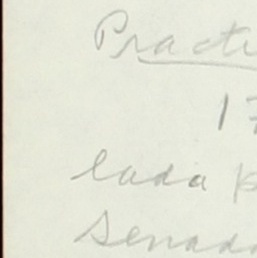 Practi
17
lada p
Senado